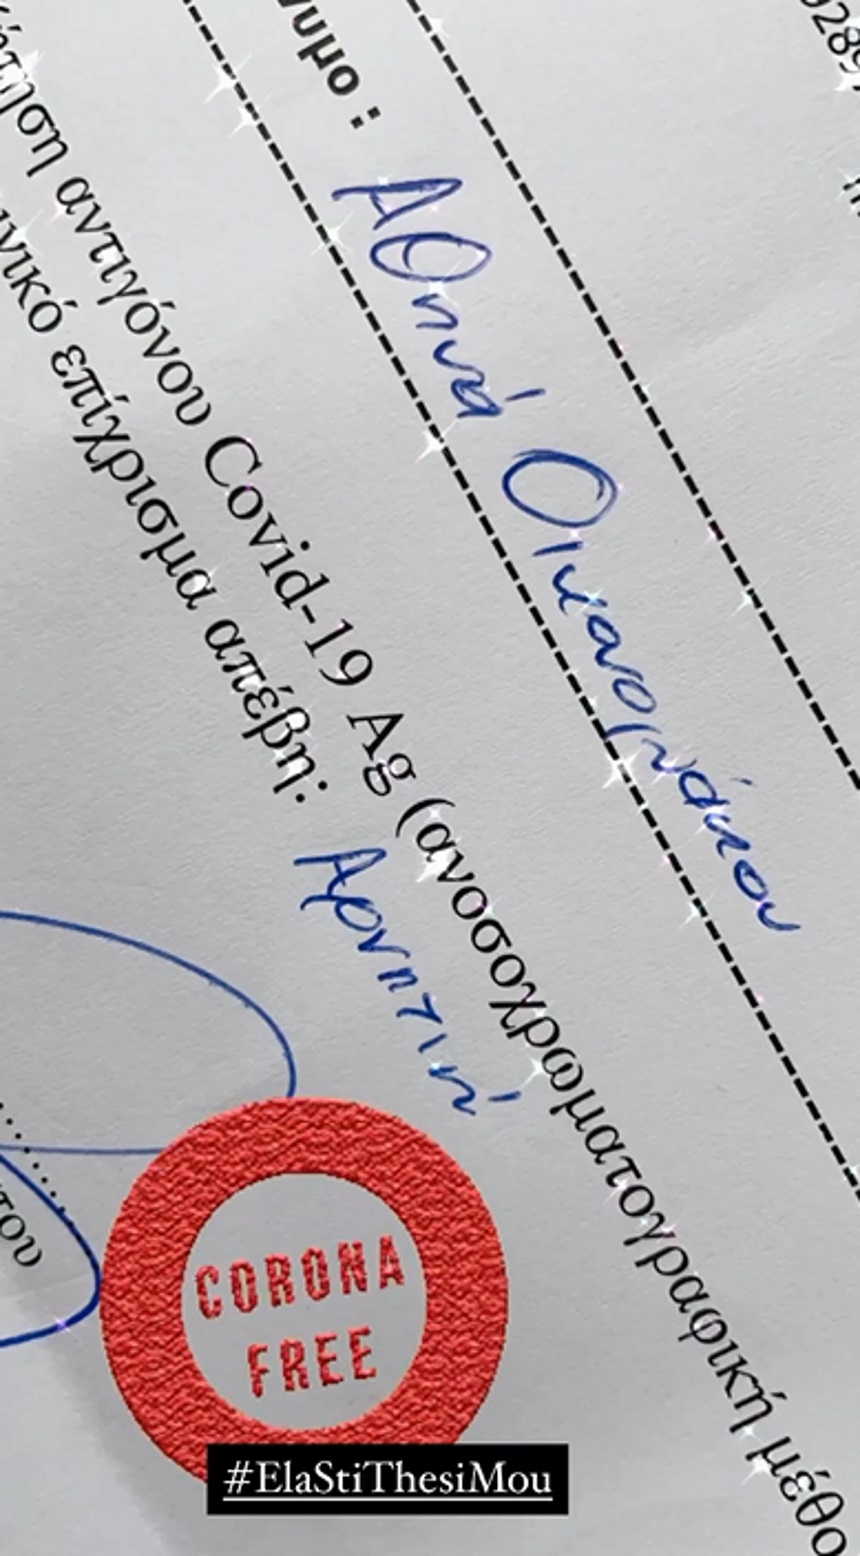 υμο : Αθηνά Οικονομάκου
ηση αντιγόνου Covid-19 Ag (ανοσοχρωματογραφική μέθο
νικό επίχρισμα απέβη: Αρνητική
του
CORONA
FREE
#ElaStiThesiMou